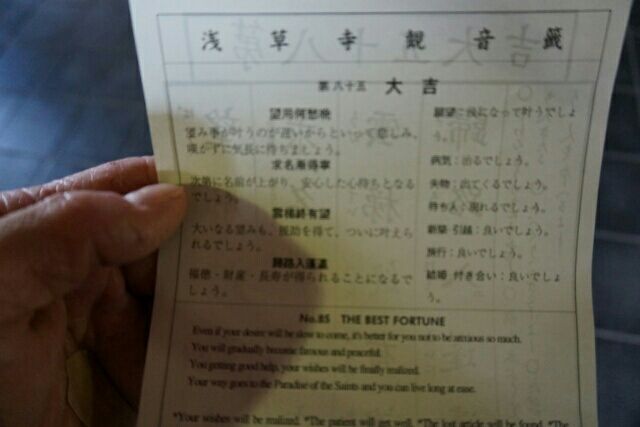 浅草寺観音籤
第八十五 大吉
望用何愁晩
望み事が叶うのが遅いからといって悲しみ、
嘆かずに気長に待ちましょう。
求名漸得寧
次第に名前が上がり、安心した心持ちとなる
でしょう。
雲梯終有望
大いなる望みも、援助を得て、ついに叶えら
れるでしょう。
帰路入蓬瀛
福徳・財産・長寿が得られることになるで
しょう。
願望：後になって叶うでしょ
病気：治るでしょう。
失物：出てくるでしょう。
待ち人：現れるでしょう。
新築・引越：良いでしょう。
旅行：良いでしょう。
結婚・付き合い：良いでしょ
う。
No.85 THE BEST FORTUNE
Even if your desire will be slow to come, it's better for you not to be anxious so much.
You will gradually become famous and peaceful.
You getting good help, your wishes will be finally realized.
Your way goes to the Paradise of the Saints and you can live long at ease.
*Your wishes will be realized. *The patient will get well. *The lost article will be found. *The